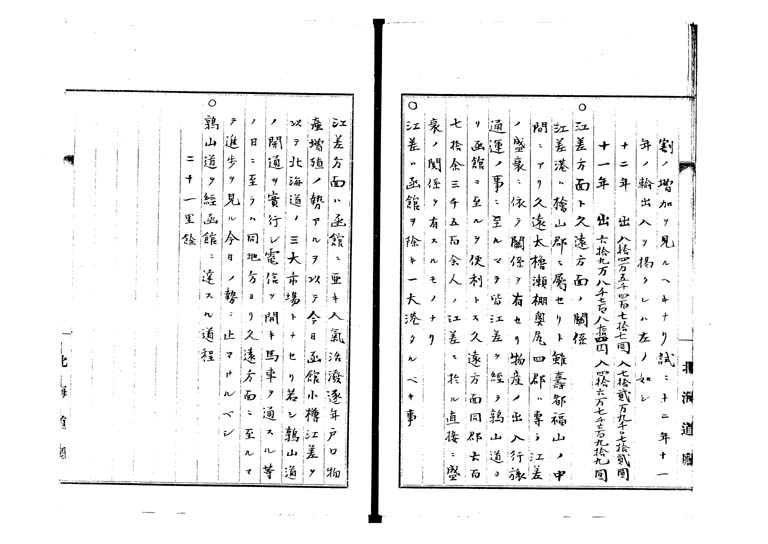 割ノ増加ヲ見ルヘキナリ試ニ十二年十一
年ノ輸出入ヲ掲クレハ左ノ如シ
十二年 出 八拾四万五千四百七拾七圓 入 七拾貳万九千七拾貳圓
十一年 出 六拾九万八千七百八拾四圓 入 四拾六万七千七百九拾九圓
○江差方面ト久遠方面ノ関係
江差港ハ檜山郡ニ属セリト雖壽都福山ノ中
間ニアリ久遠太櫓瀬棚奥尻四郡ハ専ラ江差
ノ盛衰ニ依テ関係ヲ有セリ物産ノ出入行旅
通運ノ事ニ至ルマテ皆江差ヲ経テ鶉山道ヨ
リ函館ニ至ルヲ便利トス久遠方面同郡七百
七拾余三千五百余人ノ江差ニ於ル直接ニ盛
衰ノ関係ヲ有スルモノナリ
○江差ハ函館ヲ除キ一大港タルベキ事
北海道廳
江差方面ハ函館ニ亜キ人氣活溌逐年戸口物
産増殖ノ勢アルヲ以テ今日函館小樽江差ヲ
以テ北海道ノ三大市場トナセリ若シ鶉山道
ノ開通ヲ實行シ電信ヲ開キ馬車ヲ通スル等
ノ日ニ至ラハ同地方ヨリ久遠方面ニ至ルマ
テ進歩ヲ見ル今日ノ勢ニ止マサルベシ
○鶉山道ヲ経函館ニ達スル道程
二十一里餘
北海道廳